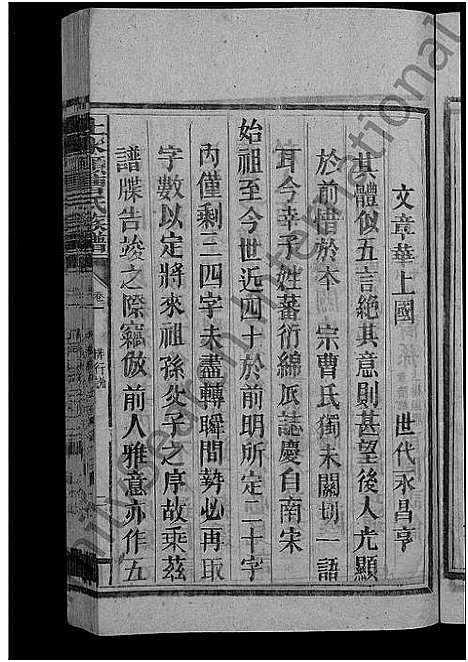 文章華上國　世代永昌亨
其體似五言絕其意則甚望後人光顯
於前惜於本　宗曹氏獨未關切一語
耳今幸子姓蕃衍綿瓜誌慶自南宋
始祖至今世近四十於前明所定二十字
內僅剩三四字未盡轉瞬間勢必再取
字數以定將來祖孫父子之序故乘茲
譜牒告竣之際竊倣前人雅意亦作五
曹氏族譜
卷一